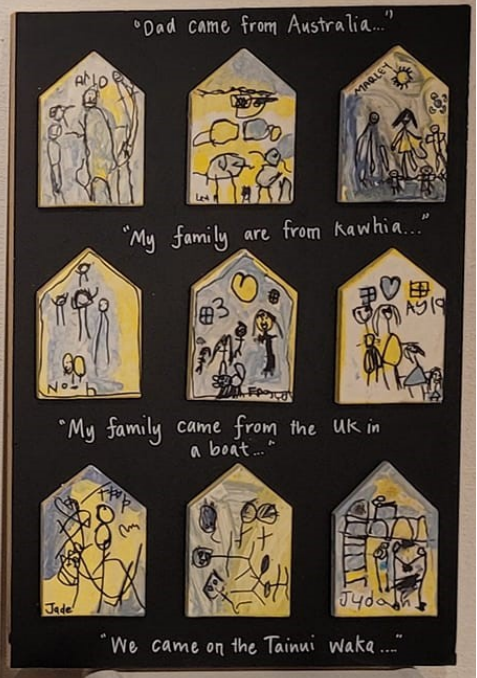 "Dad came from Australia..."
ARLO
Leo
MARLEY
"My family are from Kawhia..."
Noah
3
"My family came from the UK in
a boat..."
Jade
"We came on the Tainui waka ...."